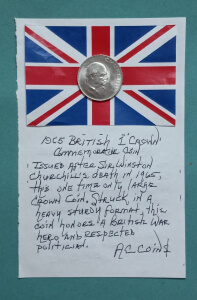 1965 British 1 Crown
Commemorative Coin
Issued after Sir Winston
Churchill's death in 1965,
this one time only large
crown coin. Struck in a
heavy sturdy format, this
coin honors a British war
hero and respected
politician.
AC COINS